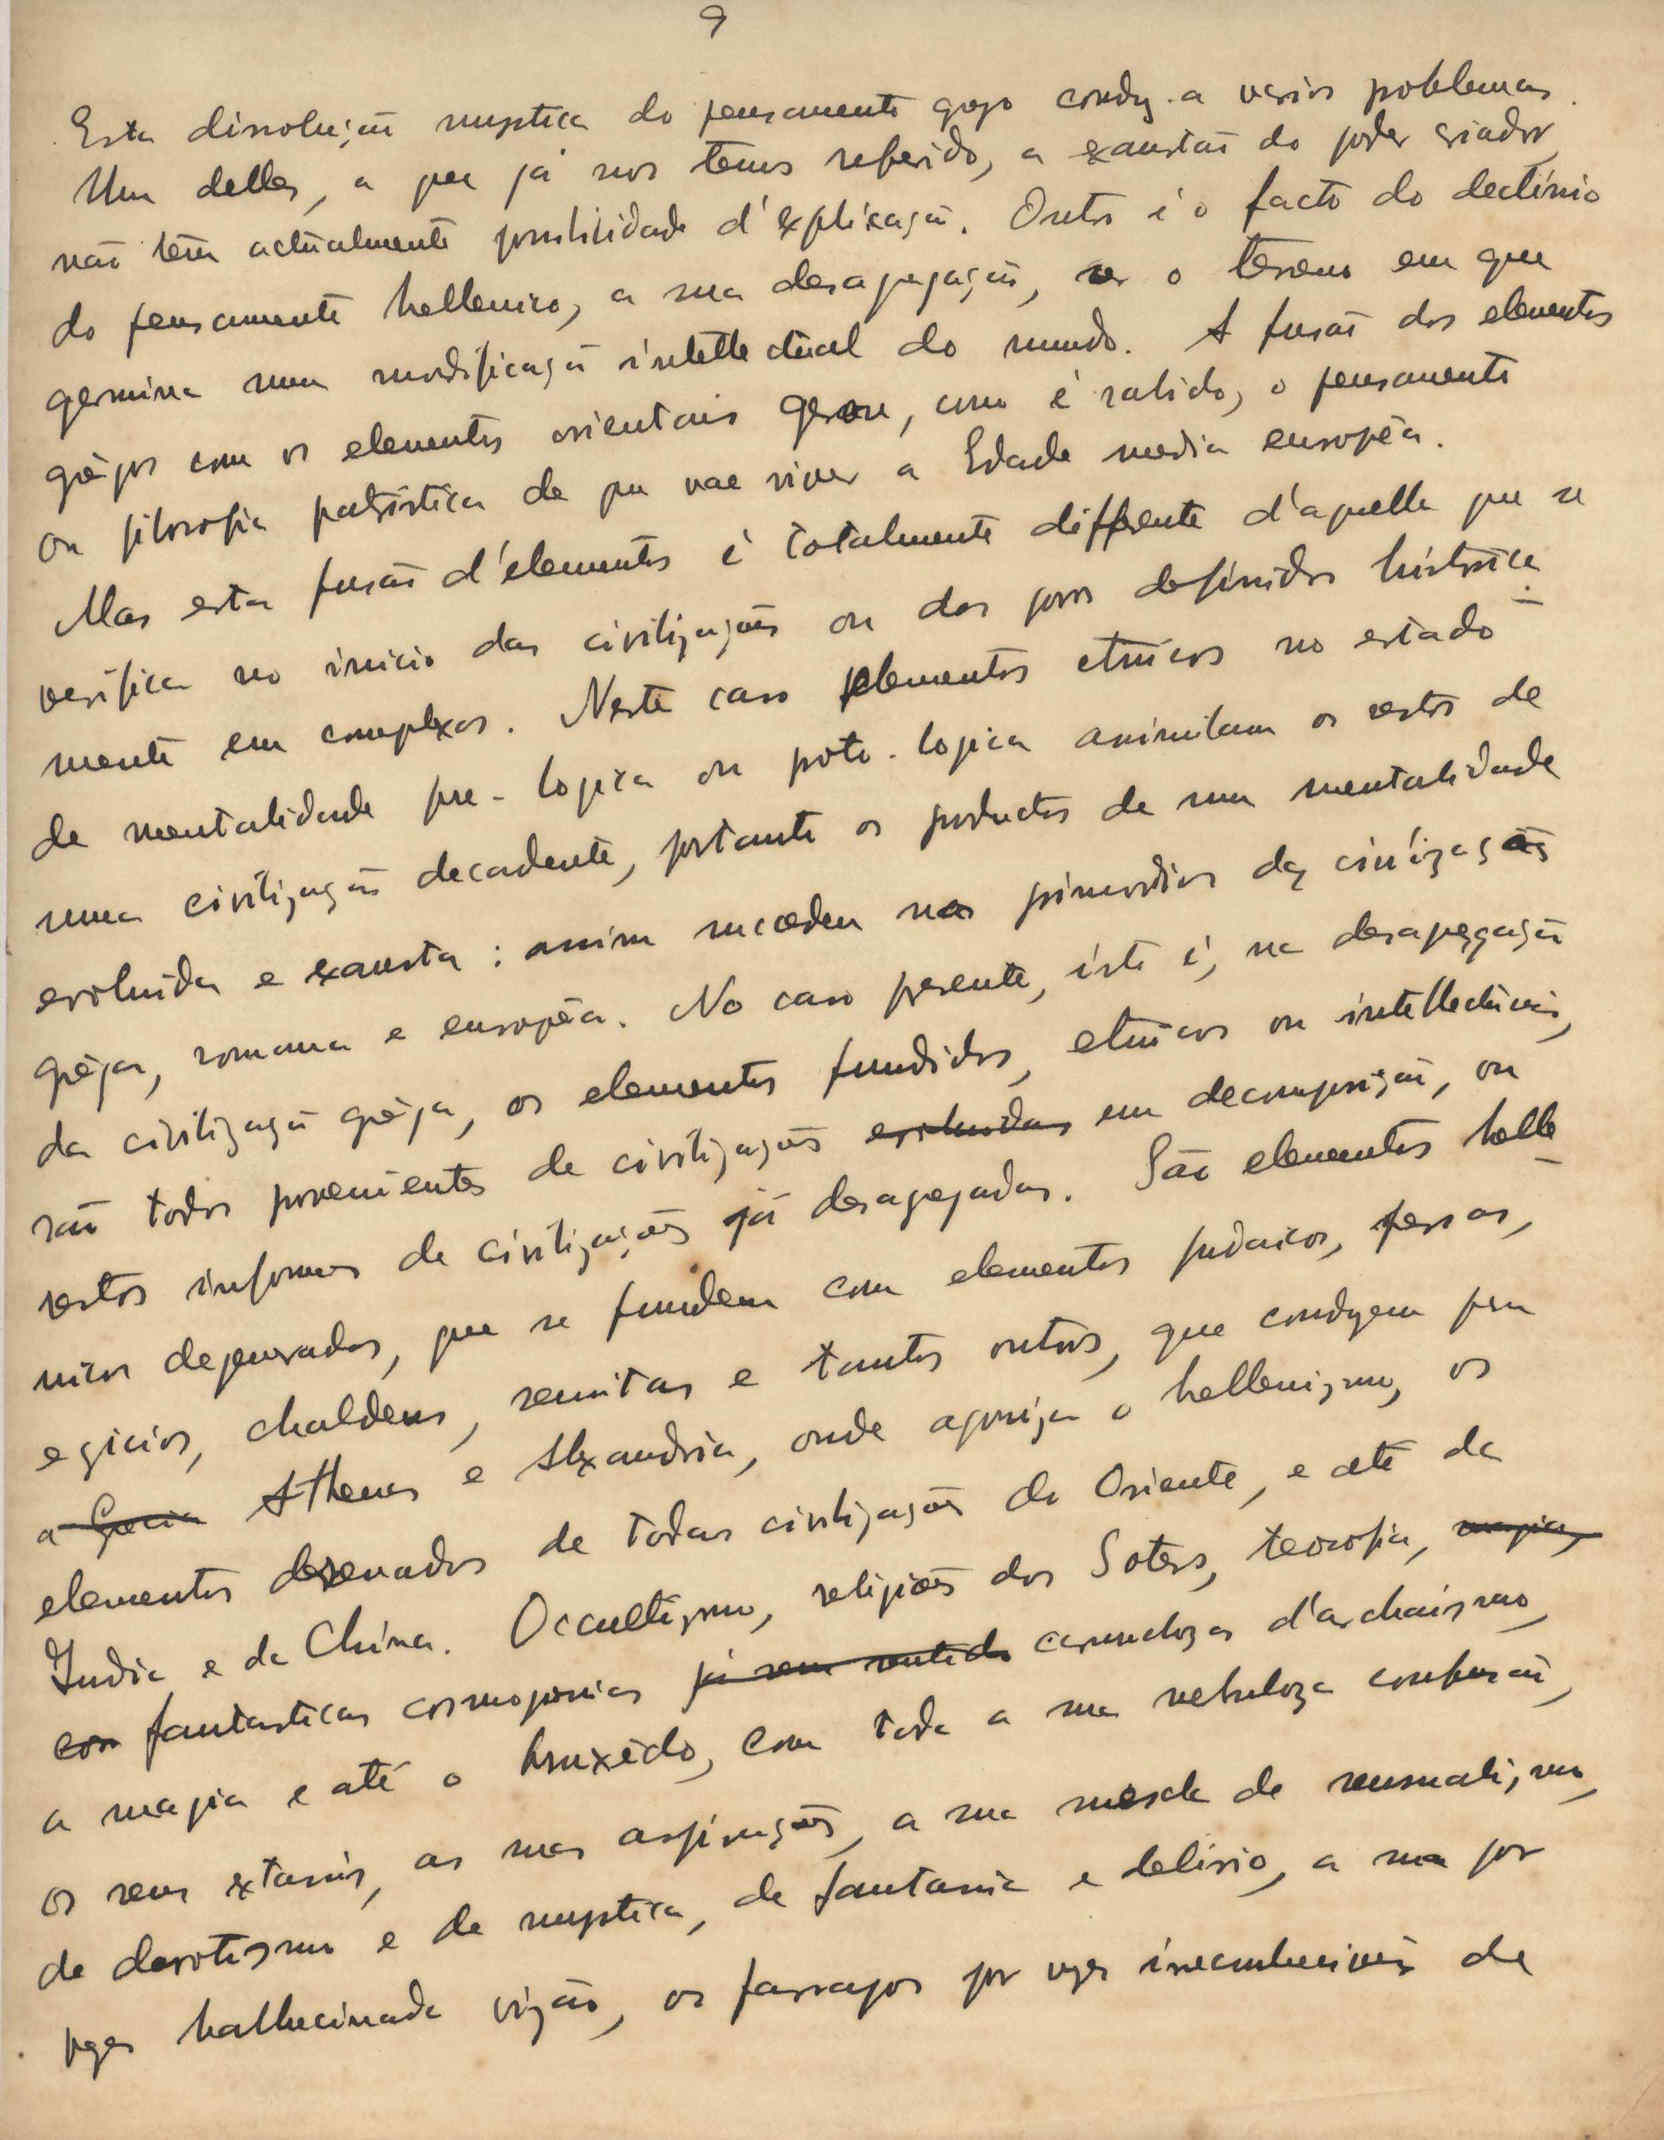 9
Esta dissolução mystica do pensamento grego conduz-a varios problemas.
Um delles, a que já nos temos referido, a exaustão do poder criador,
não tem actualmente possibilidade d'explicação. Outro é o facto do declínio
do pensamento hellenico, a sua desagregação, ser o terreno em que
germina uma modificação intellectual do mundo. A fusão dos elementos
grêgos com os elementos orientais gerou, como é sabido, o pensamento
ou filosofia patristica de que vae viver a Edade media européa.
Mas esta fusão d'elementos é totalmente differente d'aquella que se
verifica no inicio das civilizações ou dos povos definidos historica-
mente em complexos. Neste caso elementos etnicos no estado
de mentalidade pre-logica ou proto-logica assimilam os restos de
uma civilização decadente, portanto os productos de uma mentalidade
evoluida e exausta: assim succedeu nos primordios das civilizações
grêga, romana e européa. No caso presente, isto é, na desagregação
da civilização grêga, os elementos fundidos, etnicos ou intellectuais,
são todos provenientes de civilizações evoluidas em decomposição, ou
restos informes de civilizações já desagregadas. São elementos helle-
nicos depurados, que se fundem com elementos judaicos, persas,
egicios, chaldeus, semitas e tantos outros, que conduzem para
a Grecia Athenas e Alexandria, onde agoniza o hellenizmo, os
elementos derivados de todas civilizações do Oriente, e até da
India e da China. Occultizmo, religiões dos Soters, teosofia, magia,
com fantasticas cosmogonias já sem sentido carunchozas d'archaismo,
a magia e até o bruxêdo, com toda a sua nebuloza confusão,
os seus extasis, as suas aspirações, a sua mescla de sensualizmo,
de devotismo e de mystica, de fantasia e delirio, a sua por
vezes hallucinada vizão, os farrapos por vezes irreconheciveis de